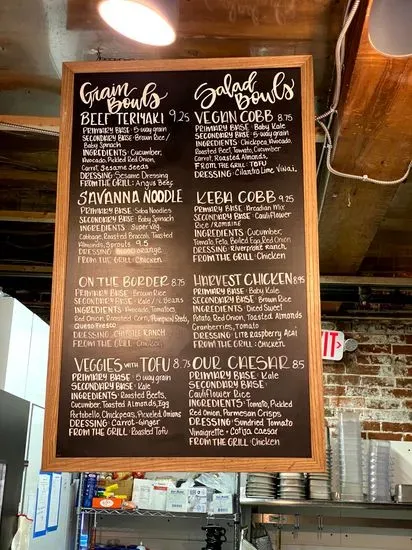 Grain
Bowls
BEEF TERIYAKI 9.25
PRIMARY BASE: 5-way grain
SECONDARY BASE: Brown Rice/
Baby Spinach
INGREDIENTS: Cucumber,
Avocado, Pickled Red Onion,
Carrot, Sesame Seeds
DRESSING: Sesame Dressing
FROM THE GRILL: Angus Beef
SAVANNA NOODLE
PRIMARY BASE: Soba Noodles
SECONDARY BASE: Baby Spinach
INGREDIENTS: Super Veg.
Cabbage, Roasted Broccoli, Toasted
Almonds, Sprouts 9.5
DRESSING: orange
FROM THE GRILL: Chicken
ON THE BORDER 8.75
PRIMARY BASE: Brown Rice
SECONDARY BASE: Kale / Beans
INGREDIENTS: Avocado, Tomatoes,
Red Onion, Roasted Corn, Pumpkin Seeds,
Queso Fresco
DRESSING: CHIPOTLE RANCH
FROM THE GRILL: Chicken
VEGGIES WITH TOFU 8.75
PRIMARY BASE: 5-way grain
SECONDARY BASE: Kale
INGREDIENTS: Roasted Beets,
Cucumber, Toasted Almonds, Egg
Portobello Chickpeas, Pickled Onions
DRESSING: Carrot-Ginger
FROM THE GRILL: Roasted Tofu
Salad
Bowls
VEGAN COBB 8.75
PRIMARY BASE: Baby Kale
SECONDARY BASE: 5-way grain
INGREDIENTS: Chickpea, Avocado,
Roasted Beet, Tomato, Cucumber
Carrot, Roasted Almonds,
FROM THE GRILL: TOFU
DRESSING: Cilantro Lime Vinai.
KEBA COBB 9.25
PRIMARY BASE: Arcadian Mix
SECONDARY BASE: Cauliflower
Rice / Romaine
INGREDIENTS: Cucumber,
Tomato, Feta, Boiled Egg, Red Onion
DRESSING: Riverbank Ranch
FROM THE GRILL: Chicken
HARVEST CHICKEN 8.95
PRIMARY BASE: Baby Kale
SECONDARY BASE: Brown Rice
INGREDIENTS: Diced Sweet
Potato, Red Onion, Toasted Almonds
Cranberries, Tomato
DRESSING: Lite Raspberry Acai
FROM THE GRILL: Chicken
OUR CAESAR 8.5
PRIMARY BASE: Kale
SECONDARY BASE:
Cauliflower Rice
INGREDIENTS: Tomato, Pickled
Red Onion, Parmesan Crisps
DRESSING: Sundried Tomato
Vinaigrette + Cotija Caesar
FROM THE GRILL: Chicken
IT